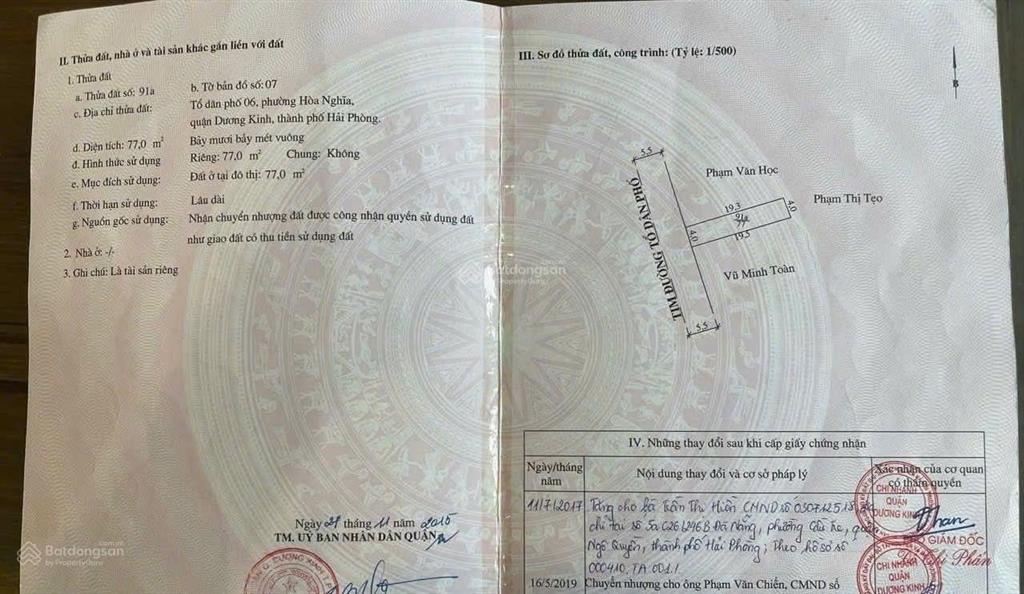 II. Thửa đất, nhà ở và tài sản khác gắn liền với đất
1. Thửa đất
a. Thửa đất số: 91a
b. Tờ bản đồ số: 07
c. Địa chỉ thửa đất:
Tổ dân phố 06, phường Hòa Nghĩa,
quận Dương Kinh, thành phố Hải Phòng.
d. Diện tích: 77,0 m²
Bảy mươi bảy mét vuông
đ. Hình thức sử dụng
Riêng: 77,0 m² Chung: Không
e. Mục đích sử dụng:
Đất ở tại đô thị: 77,0 m²
f. Thời hạn sử dụng:
Lâu dài
g. Nguồn gốc sử dụng:
Nhận chuyển nhượng đất được công nhận quyền sử dụng đất
như giao đất có thu tiền sử dụng đất
2. Nhà ở: -/-
3. Ghi chú: Là tài sản riêng
Ngày 21 tháng 11 năm 2015
TM. UỶ BAN NHÂN DÂN QUẬN
III. Sơ đồ thửa đất, công trình: (Tỷ lệ: 1/500)
B
5,5
Phạm Văn Học
Phạm Thị Tẹo
19,3
4,0
4,0
19,5
TIM ĐƯỜNG TỔ DÂN PHỐ
Vũ Minh Toàn
5,5
IV. Những thay đổi sau khi cấp giấy chứng nhận
Ngày/tháng
năm
Nội dung thay đổi và cơ sở pháp lý
Xác nhận của cơ quan
có thẩm quyền
11/7/2017 Tặng cho bà Trần Thị Hiền CMND số
chỉ tại số 5a C26 Đà Nẵng, phường Cầu Tre, quận
Ngô Quyền, thành phố Hải Phòng; Theo hồ sơ số
000410.TA 001.1
CHI NHÁNH
QUẬN
DƯƠNG KINH
PHÓ GIÁM ĐỐC
16/5/2019 Chuyển nhượng cho ông Phạm Văn Chiến, CMND số
CHI NHÁNH
QUẬN
DƯƠNG KINH
Batdongsan
by PropertyGuru
Batdongsan
by PropertyGuru
Batdongsan
by PropertyGuru